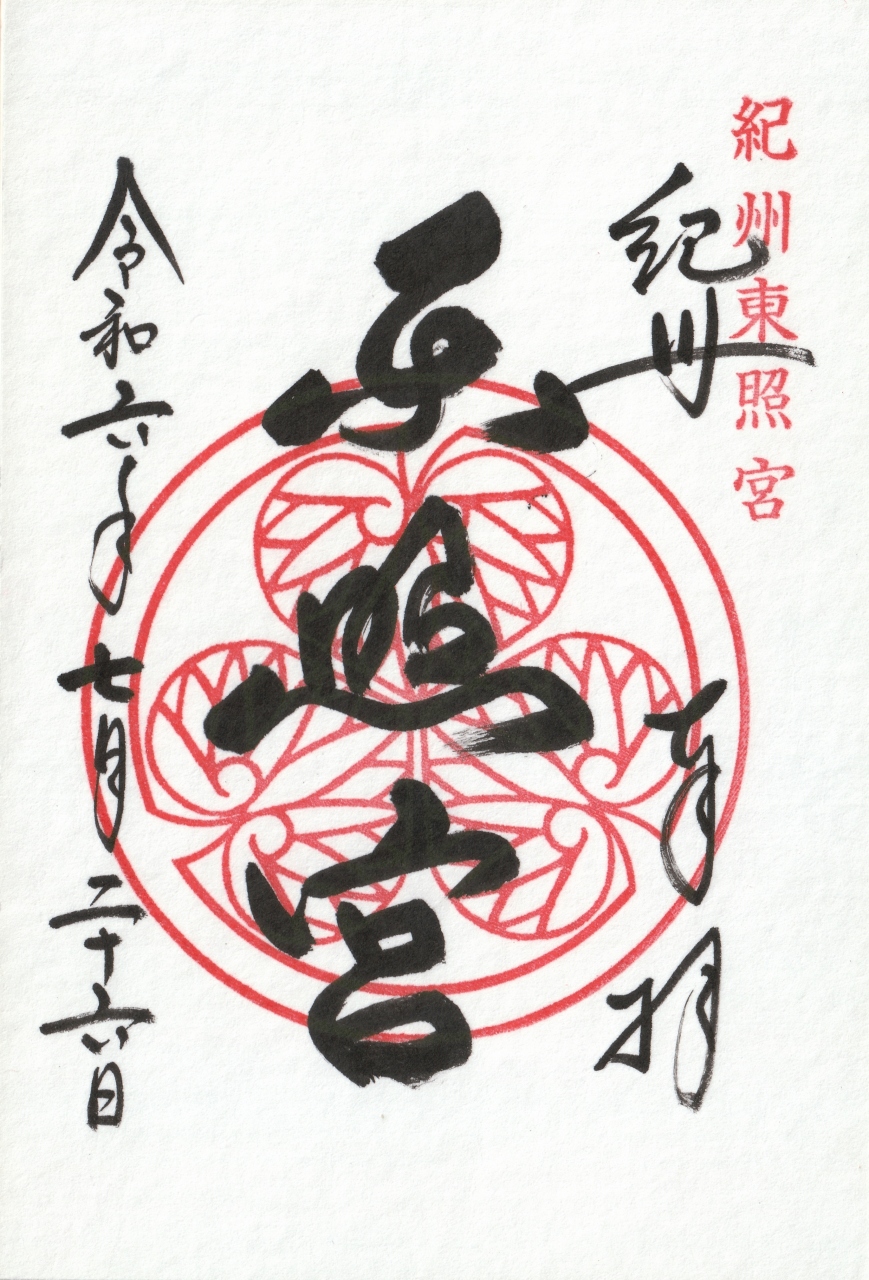 紀州東照宮
紀州
奉拝
東照宮
令和六年七月二十六日